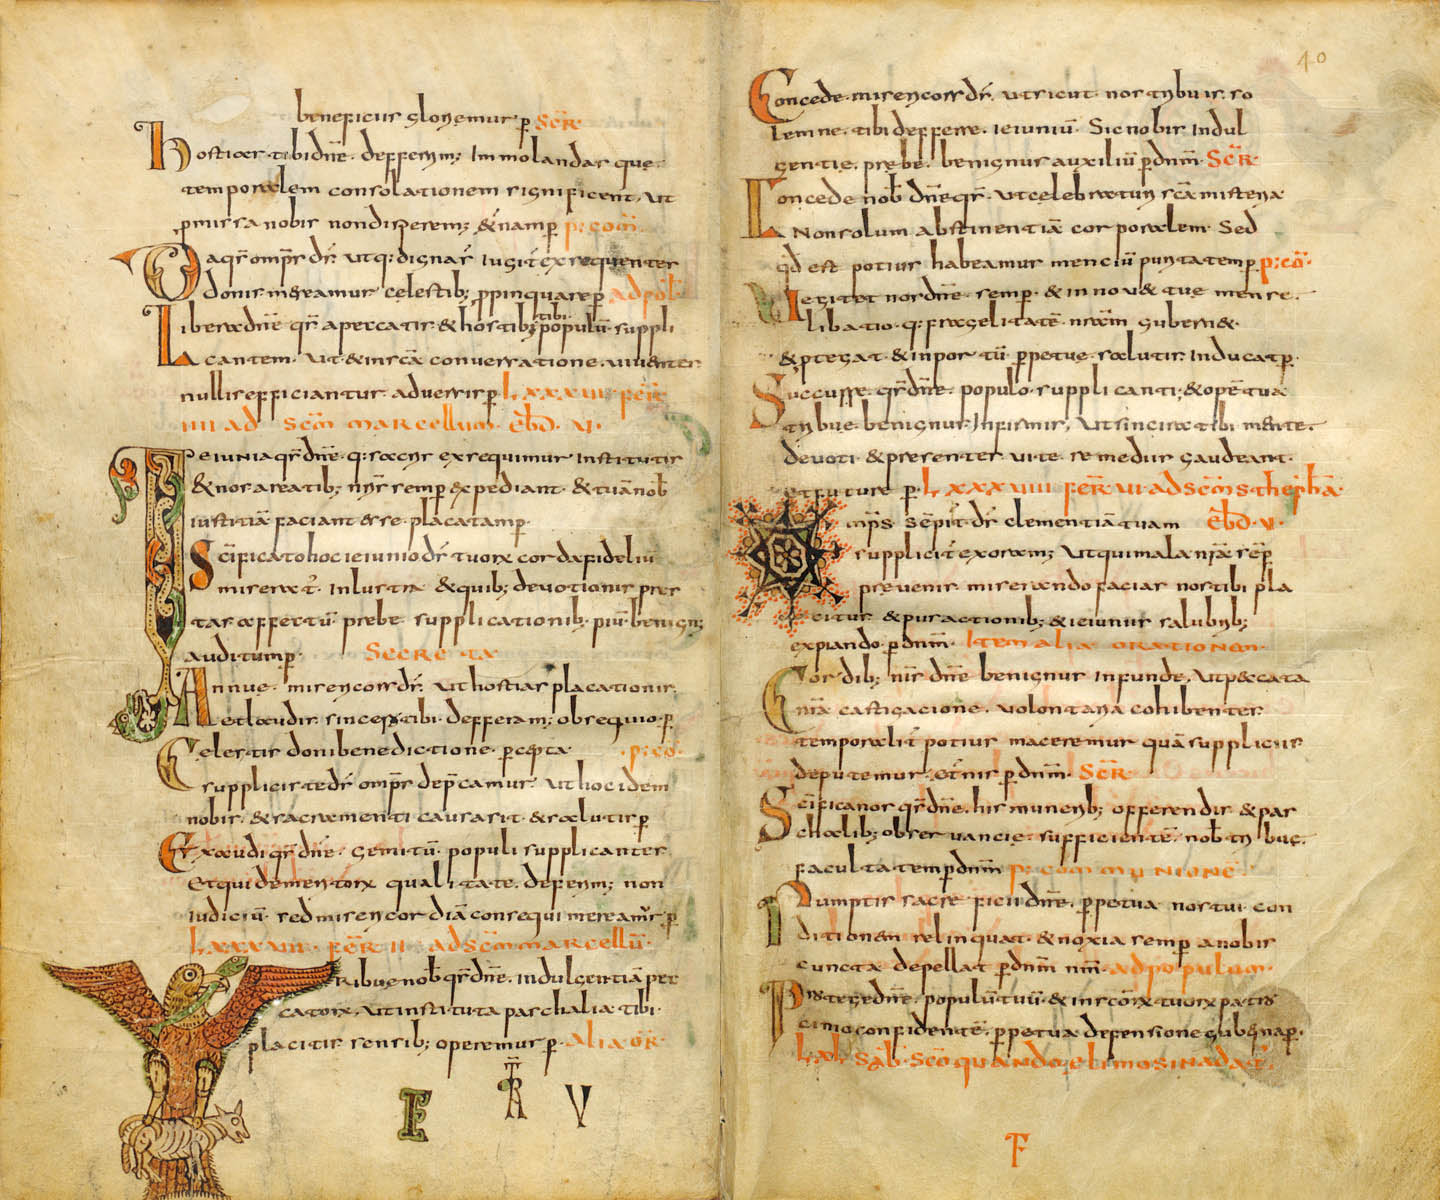 beneficiis gloriemur p SCR
Hostias tibi dne defferim; Immolandas que
temporalem consolationem significent, ut
pmissa nobis non disperem; & nam p p; com
Da qs omps ds ut q; dignas iugit exsequenter
donis mereamur celestib; ppinquare p ad pol
Libera dne qs a peccatis & hostib; tibi populu suppli
cantem ut & in sca conversatione viventes
nullis efficiantur adversis p LXXXVII fer
IIII ad scm marcellum ebd V
Ieiunia qs dne q; sacris exsequimur institutis
& nos a reatib; nris semp expediant & tua nob
iustitia faciant esse placatam p
Scificato hoc ieiunio ds tuorx corda fideliu
miserat inlustra & quib; devotionis pres
tas affectu prebe supplicationib; piu benign;
auditum p secreta
Annue misericors ds ut hostias placationis
et laudis sincera tibi defferam; obsequio p
Celestis doni benedictione percepta p; co
supplicis te ds omps depcamur ut hoc idem
nobis & sacramenti causa sit & salutis p
Exaudi qs dne gemitu populi supplicantes
Et qui de meritorx qualitate defferim; non
iudiciu sed misericordia consequi mereamur p
LXXXVIII fer II ad scm marcellu
Tribue nob qs dne indulgentia pec
catorx ut instituta paschalia tibi
placitis sensib; operemur p alia or
E R V
40
Concede misericors ds ut sicut nos tribuis so
lemne tibi defferre ieiuniu Sic nobis indul
gentie prebe benignus auxiliu p dnm SCR
Concede nob dne qs ut celebraturi sca misteria
Non solum abstinentia corporalem Sed
qd est potius habeamus menciu puritatem p p; co
Vegitet nos dne semp & innovet tue mense
libatio q; fragelitate nram gubernet
& ptegat & in portu ppetue salutis inducat p
Succurre qs dne populo supplicanti; & ope tua
tribue benignus Infirmis, ut sincira tibi mente
devoti & presentes vite remediis gaudeant
et future p LXXXVIIII fer VI ad scm stephana
mps sepit ds clementia tuam ebd V
supplicit exoram; ut qui mala nra semp
prevenis miserando facias nos tibi pla
citus & puractionib; & ieiunis salubrib;
expiando p dnm Item alia orationem
Cordib; nris dne benignus infunde, ut peccata
nra castigacione volontaria cohibentes
temporalit potius maceremur qua suppliciis
deputemur etnis p dnm SCR
Scificanos qs dne his munerib; offerendis & pas
chalib; observancie sufficiente nob tribue
facultatem p dnm p; communione
Sumptis sacreficii dne, ppetua nos tui con
ditionem relinquat & noxia semp a nobis
cuncta depellat p dnm nm ad populum
Protege dne populu tuu & in scorx tuorx patro
cimo confidente ppetua defensione guberna p
LXL Sab Sco quando elimosina dat
F